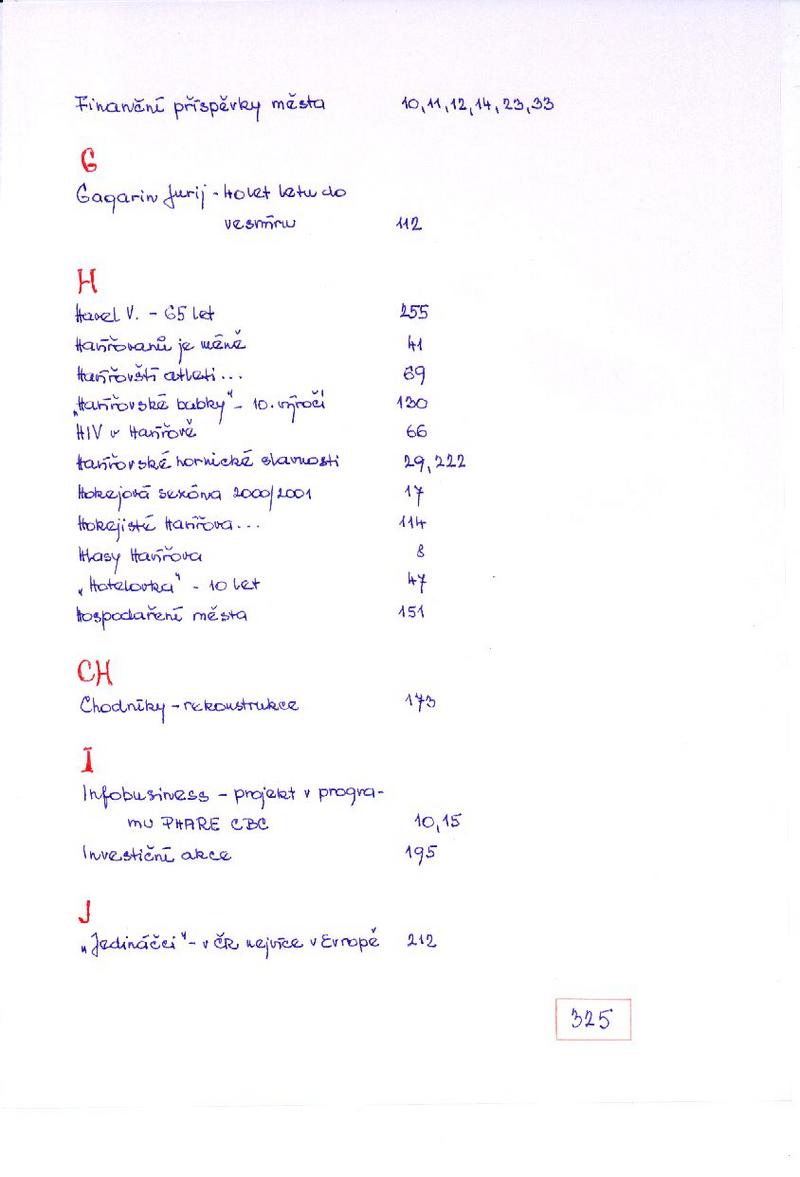 Finanční příspěvky města 10, 11, 12, 14, 23, 33
G
Gagarin Jurij - 40 let letu do
vesmíru 112
H
Havel V. - 65 let 255
Havířovanů je méně 41
Havířovští atleti... 69
"Havířovské babky" - 10. výročí 130
HIV v Havířově 66
Havířovské hornické slavnosti 29, 222
Hokejová sezóna 2000/2001 17
Hokejisté Havířova... 114
Hlasy Havířova 8
"Hotelovka" - 10 let 47
Hospodaření města 151
CH
Chodníky - rekonstrukce 173
I
Infobusiness - projekt v progra-
mu PHARE CBC 10, 15
Investiční akce 195
J
"Jedináčci" - v ČR nejvíce v Evropě 212
325